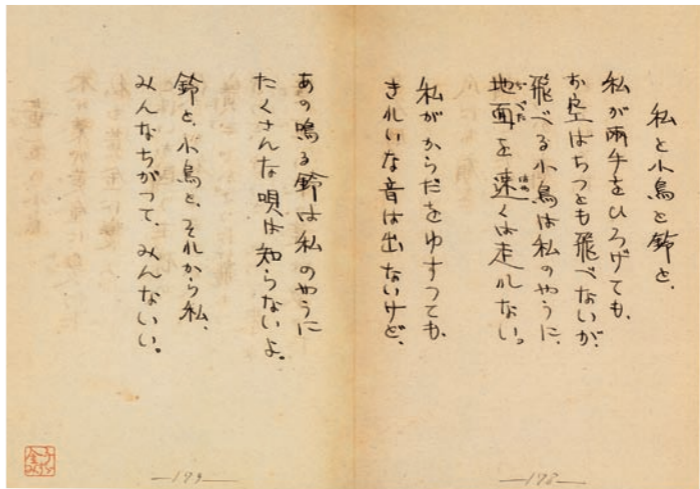 私と小鳥と鈴と、
私が兩手をひろげても、
お空はちつとも飛べないが、
飛べる小鳥は私のやうに、
地面を速くは走れない。
私がからだをゆすつても、
きれいな音は出ないけど、
あの鳴る鈴は私のやうに
たくさんな唄は知らないよ。
鈴と、小鳥と、それから私、
みんなちがつて、みんないい。